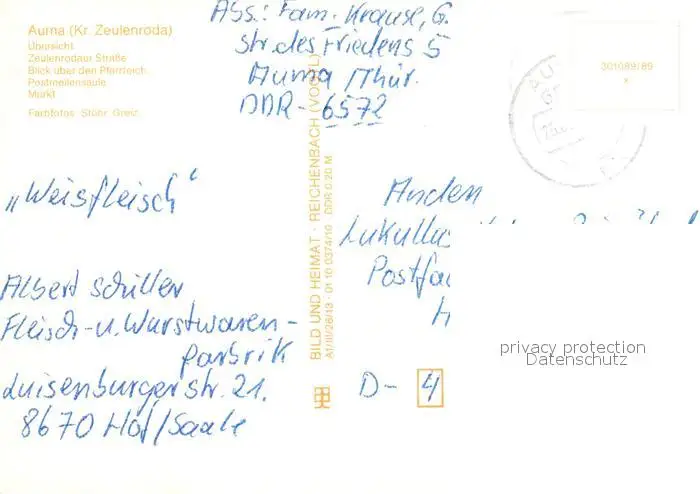 Auma (Kr. Zeulenroda)
Übersicht
Zeulenrodaer Straße
Blick über den Pfarrteich
Postmeilensäule
Markt
Farbfotos: Stöhr, Greiz
Abs.: Fam. Krause, G.
Str. des Friedens 5
Auma /Thür.
DDR - 6572
301089/89
„Weisfleisch“
Albert Schiller
Fleisch- u. Wurstwaren-
parbrik
Luisenburgerstr. 21.
8670 Hof/Saale
BILD UND HEIMAT · REICHENBACH (VOGTL)
A1/III/26/13 · 01 10 0374/10 DDR 0,20 M
An den
Lukullu
Postfa
D- 4
privacy protection
Datenschutz